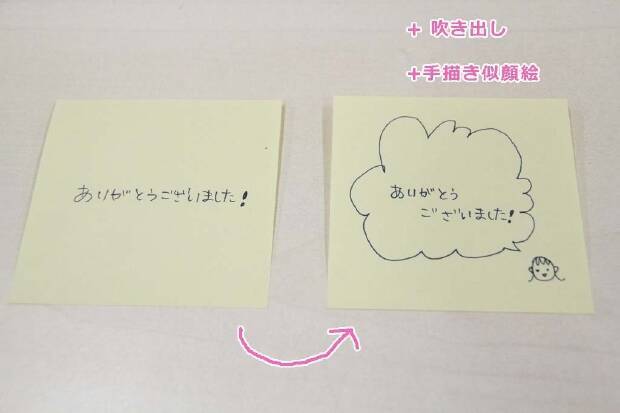 + 吹き出し
+手描き似顔絵
ありがとうございました!
ありがとう
ございました!